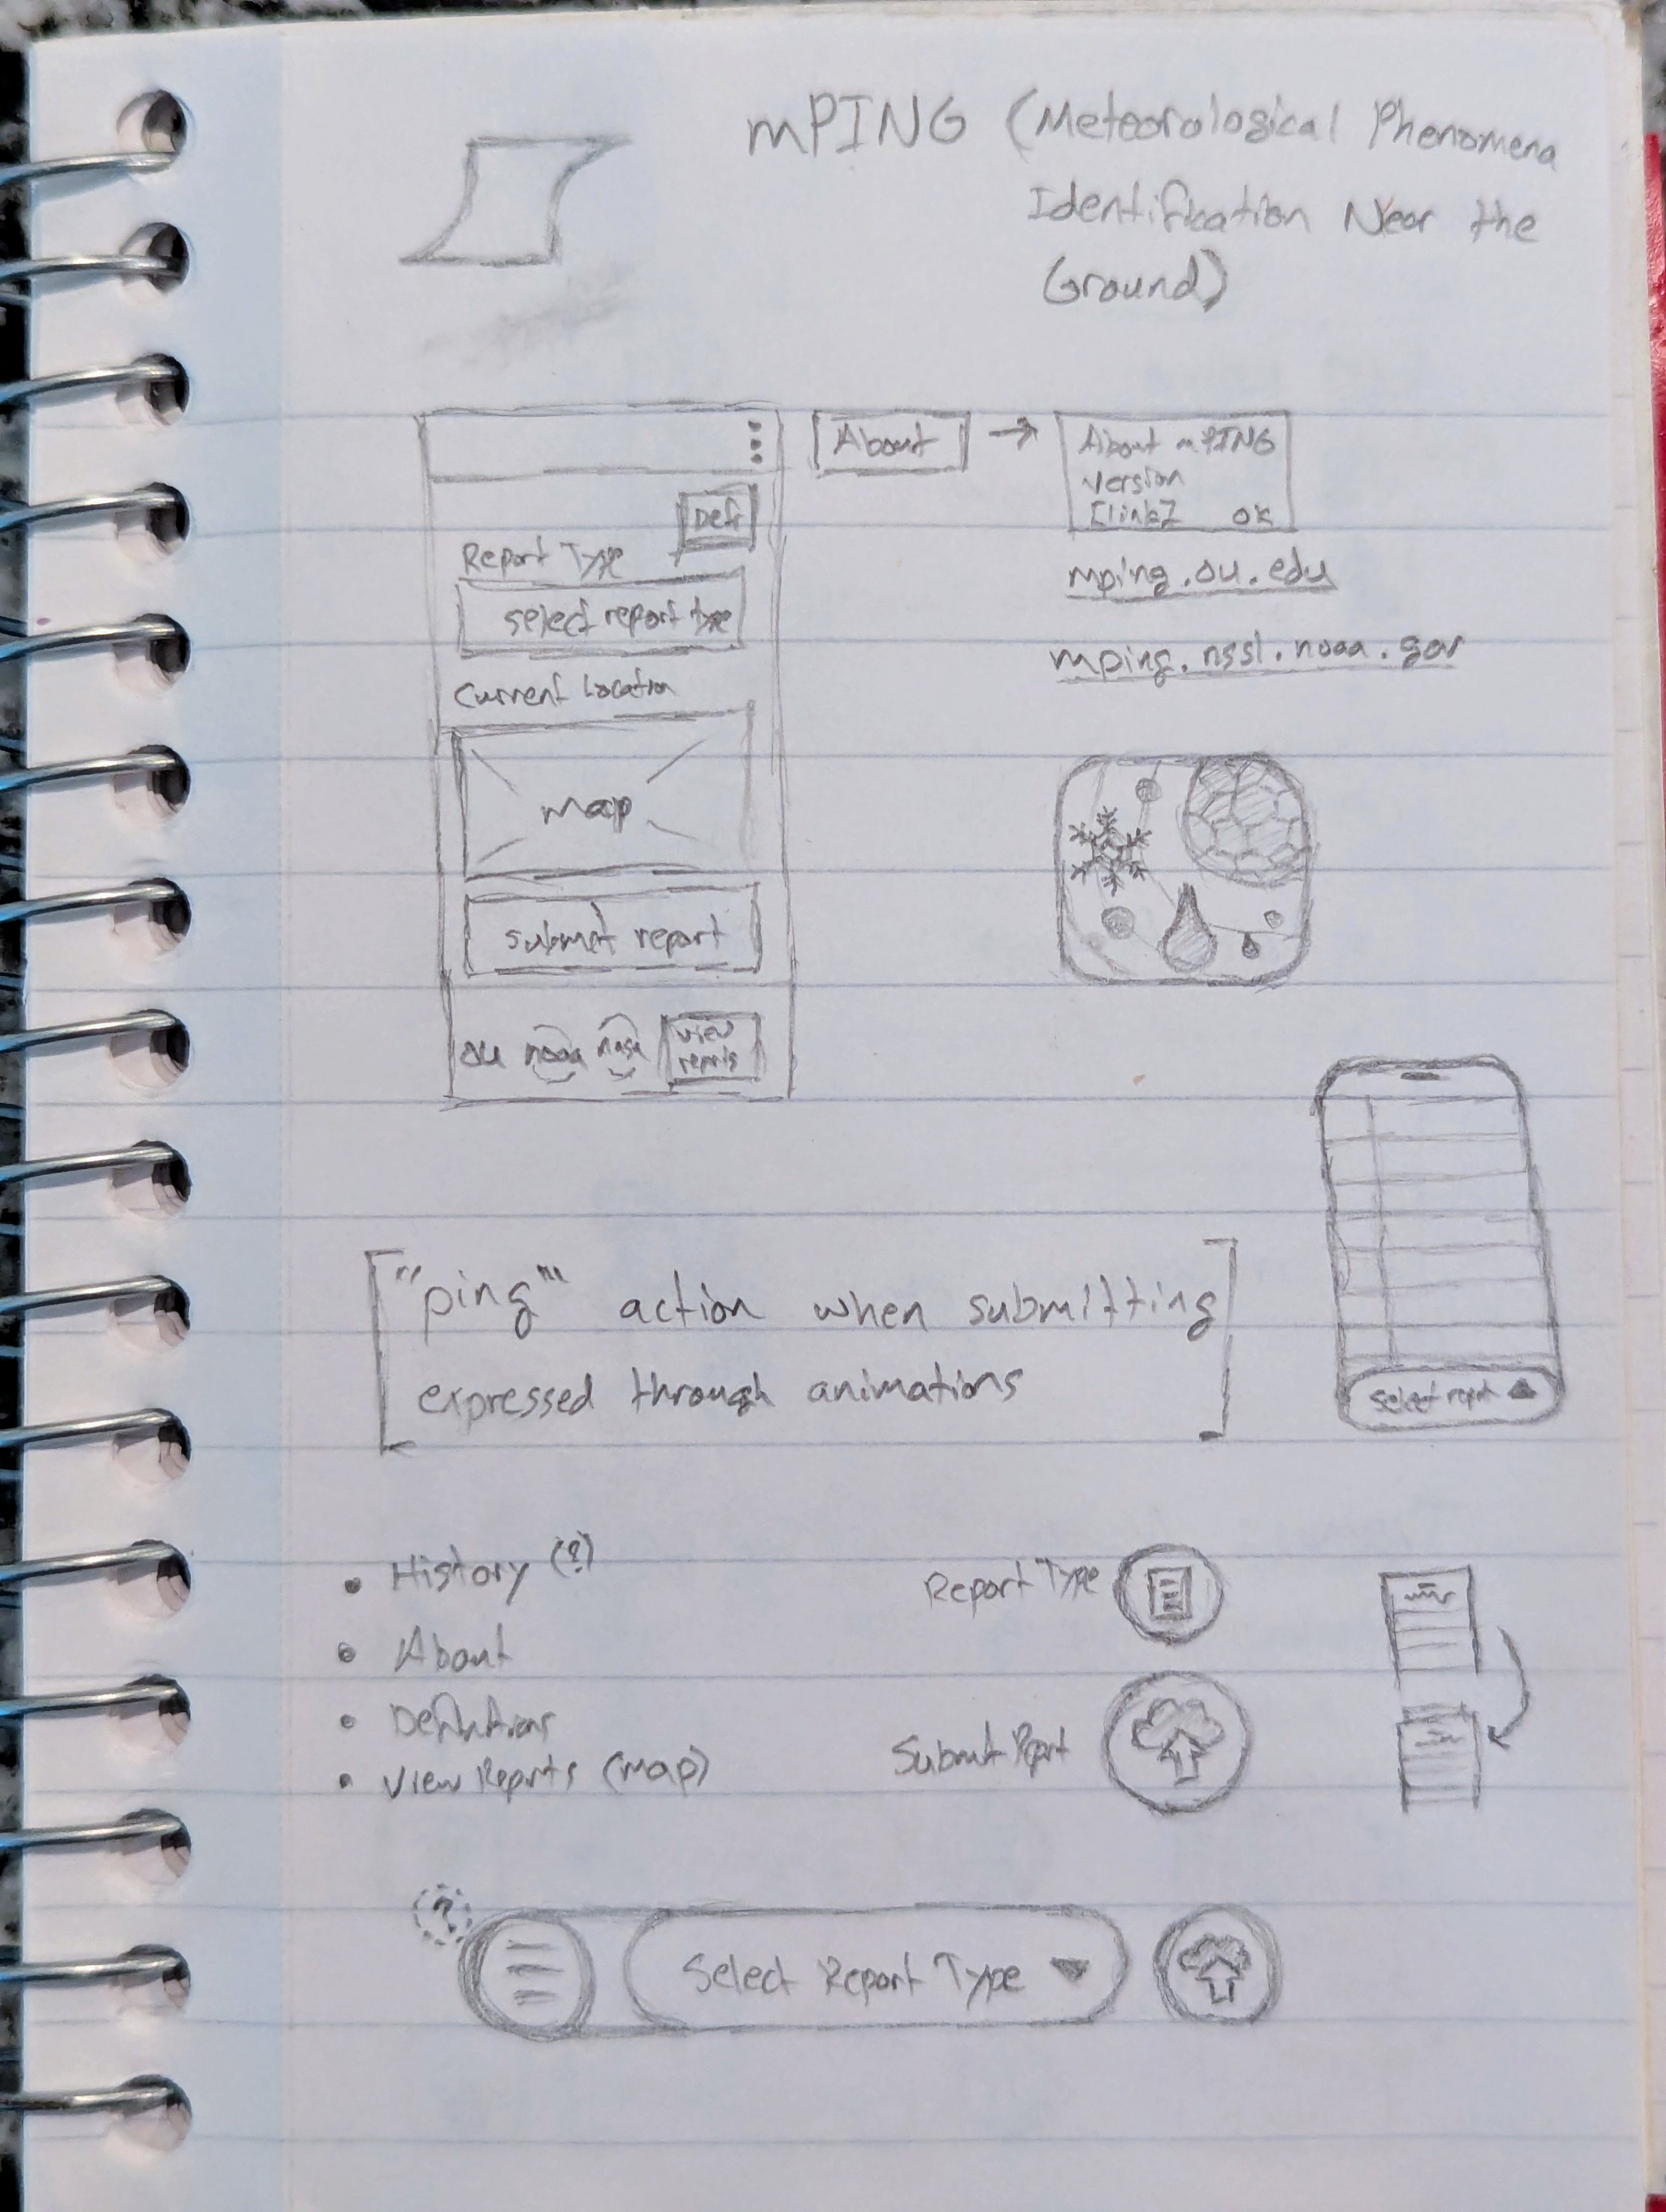 mPING (Meteorological Phenomena
Identification Near the
Ground)
About
About mPING
version
[link] ok
mping.ou.edu
mping.nssl.noaa.gov
Def
Report Type
select report type
Current Location
map
submit report
ou noaa nasa
view
reports
"ping" action when submitting
expressed through animations
Select report
• History (?)
• About
• Definitions
• View Reports (map)
Report Type
Submit Report
?
Select Report Type